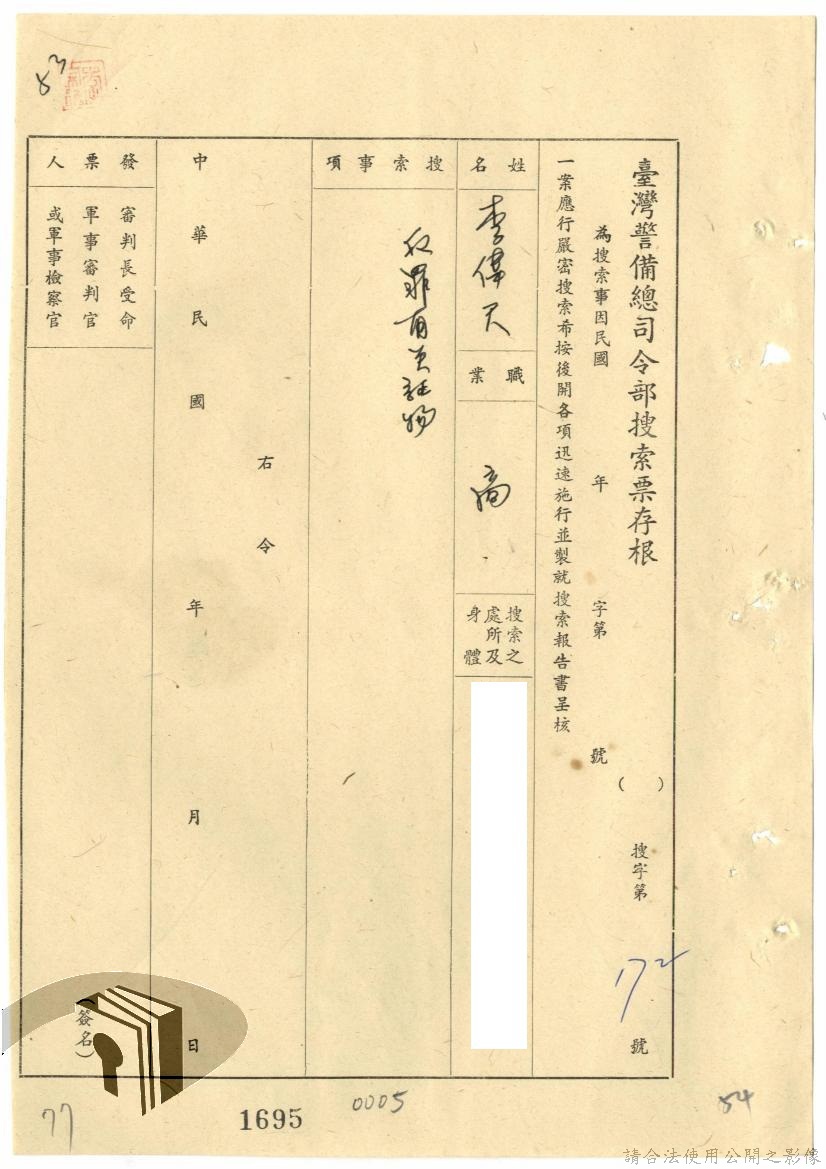 83
臺灣警備總司令部搜索票存根
(　)搜字第172號
為搜索事因民國　年　字第　號
一案應行嚴密搜索希按後開各項迅速施行並製就搜索報告書呈核
姓名
李偉天
職業
商
搜索之
處所及
身體
搜索事項
犯罪有關証物
右令
中華民國　年　月　日
發票人
審判長受命
軍事審判官
或軍事檢察官
(簽名)
77
1695
0005
54
請合法使用公開之影像